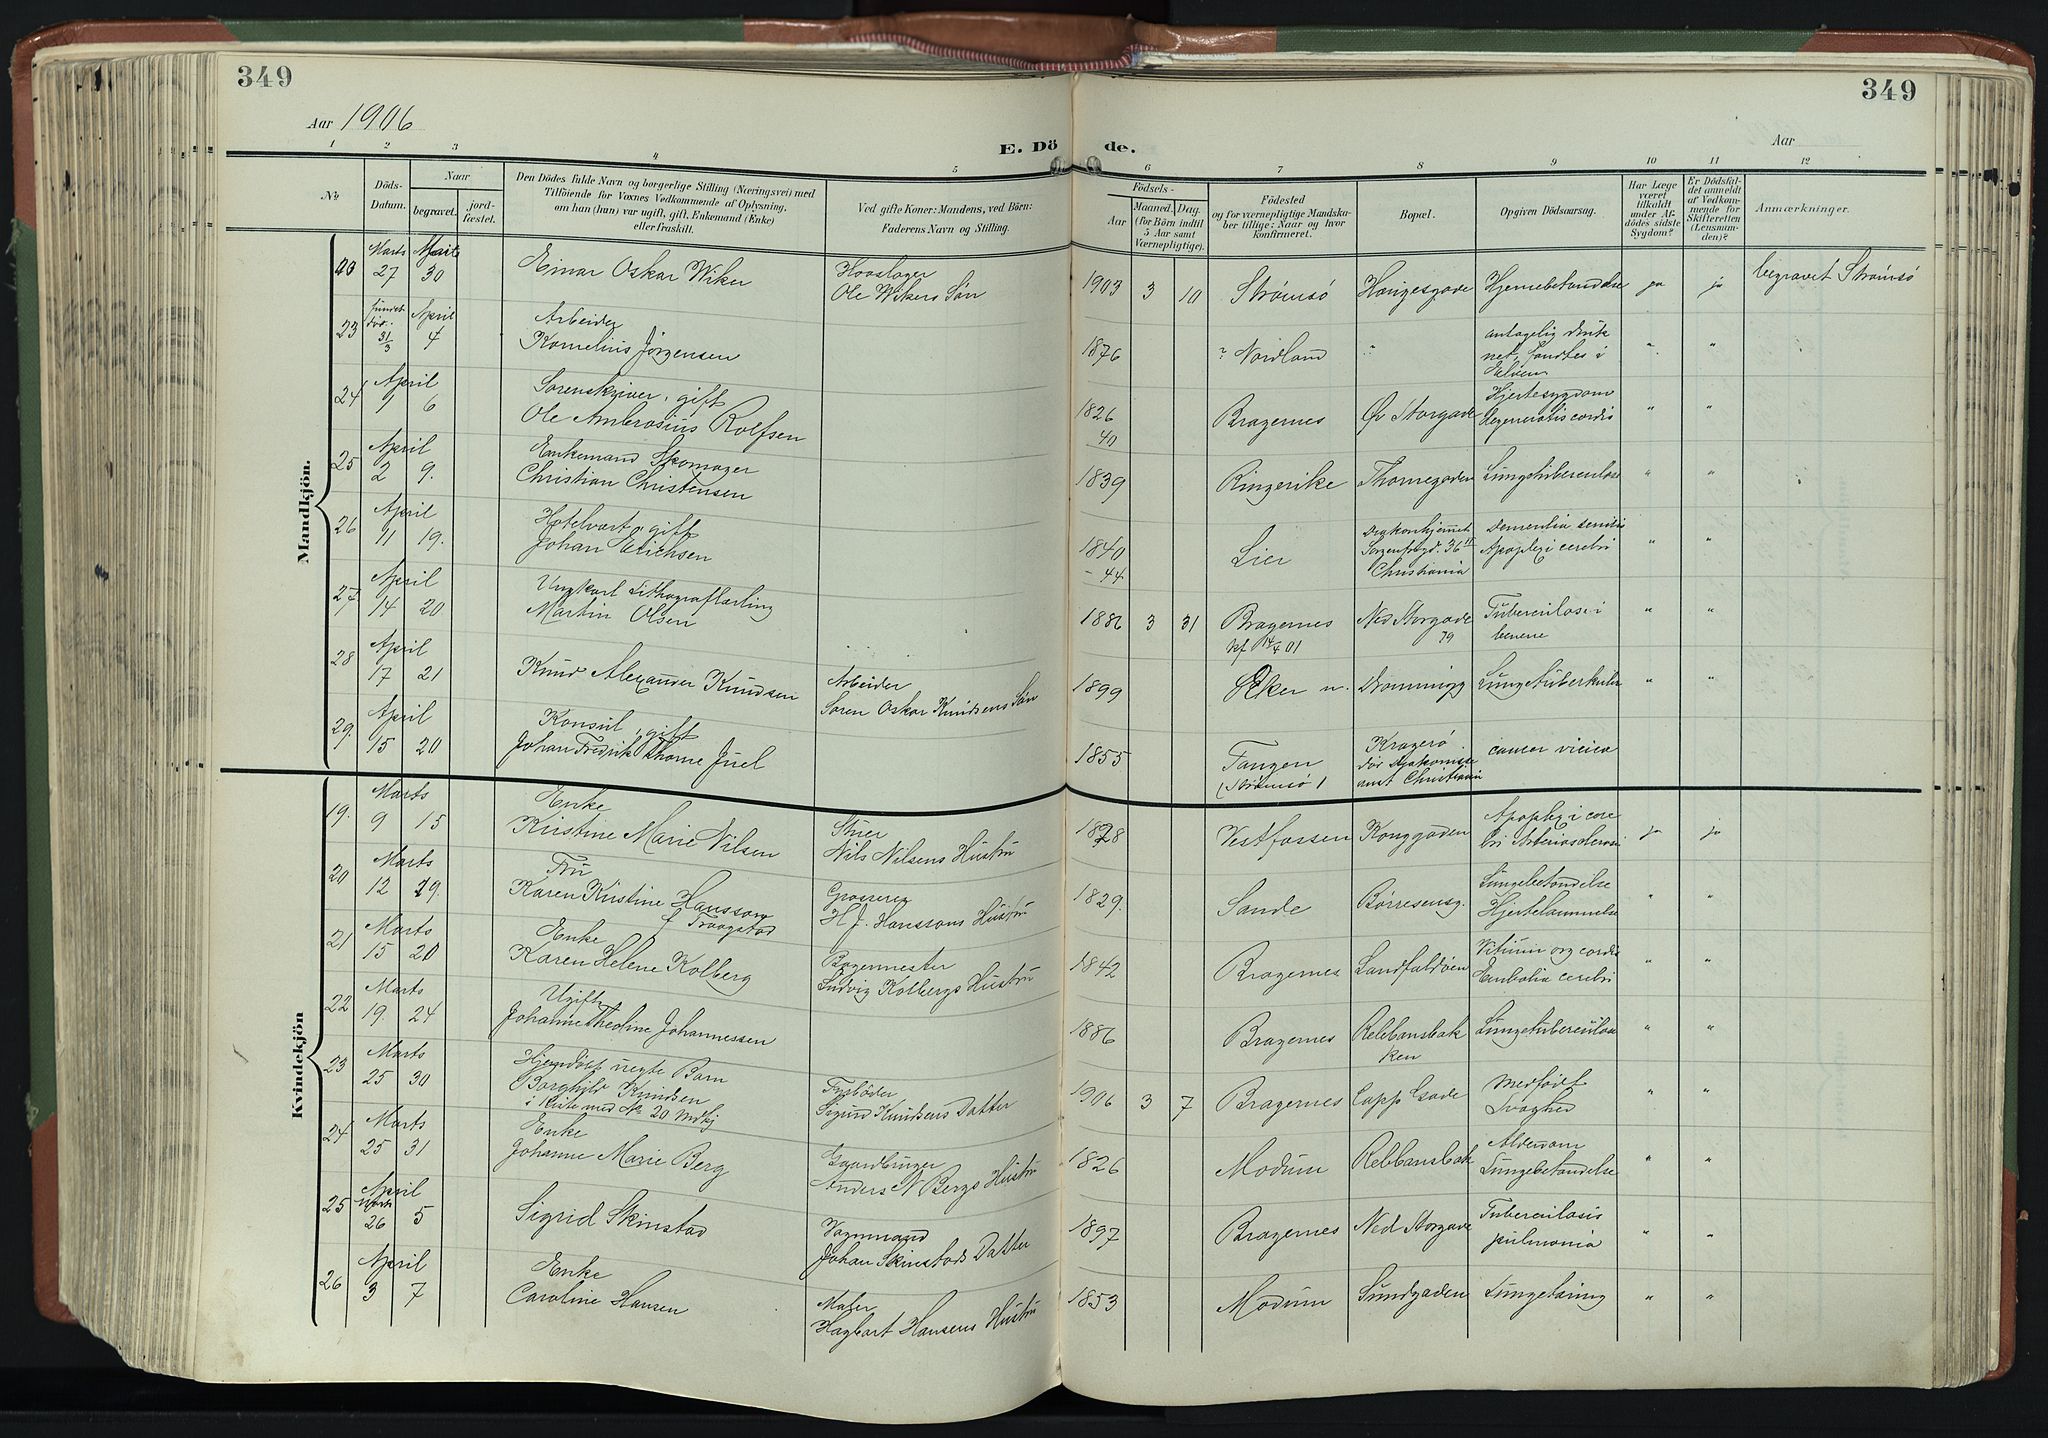 349
349
Aar 1906
E. Dö de.
Aar
1 2 3 4 5 6 7 8 9 10 11 12
No.
Döds-Datum.
Naar
begravet.
jord-fæstet.
Den Dödes fulde Navn og borgerlige Stilling (Næringsvei) med
Tilföiende for Voxnes Vedkommende af Oplysning,
om han (hun) var ugift, gift, Enkemand (Enke)
eller fraskilt.
Ved gifte Koner: Mandens, ved Börn:
Faderens Navn og Stilling.
Födsels-
Aar
Maaned. Dag.
(for Börn indtil
5 Aar samt
Værnepligtige).
Födested
og for værnepligtige Mandska-
ber tillige: Naar og hvor
konfirmeret.
Bopæl.
Opgiven Dödsaarsag.
Har Læge
været
tilkaldt
under Af-
dödes sidste
Sygdom?
Er Dödsfal-
det anmeldt
af Vedkom-
mende for
Skifteretten
(Lensman-
den)?
Anmærkninger.
Mandkjön.
Marts Marts
27 30 Einar Oskar Wiker Ole Wikers Søn 1903 3 10 Strømsø Haugesgade Hjernebetændelse ja ja begravet Strømsø
23 fundet død 31/3 April 4 Arbeider
Kornelius Jørgensen 1876 ? Nordland " antagelig druk
net, fandtes i
Elven " "
24 April
1 6 Sorenskriver, gift
Ole Ambrosius Rolfsen 1826
40 Bragernes Øv Storgade Hjertesygdom
degeneratis cordis " "
25 April
2 9. Enkemand Skomager
Christian Christensen 1839 Ringerike Thornegaden Lungetuberculose " "
26 April
11 19. Hotelvært, gift
Johan Erichsen 1840
-44 Lier Diakonhjemmet
Sorgenfrigd. 36 II
Christiania Dementia senilis
Apoplexi cerebri " "
27 April
14 20 Ungkarl Lithograflærling
Martin Olsen 1886 3 31 Bragernes
kf 14/4 01 Ned Storgade
79 Tuberculose i
benene " "
28 April
17 21 Knud Alexander Knudsen Arbeider
Søren Oskar Knudsens Søn 1899 Eker n. Dronningg Lungetuberkulose " "
29. April
15 20 Konsul, gift
Johan Fredrik Thorne Juel 1855 Tangen
(Strømsø) Kragerø.
dør Diakonisse
anst Christiania
Kvindekjön
19. Marts
9 15 Enke
Kristine Marie Nilsen Stuer
Nils Nilsens Hustru 1828 Vestfossen Konggaden Apoplexi cere
bri Arteriosclerose ja ja
20 Marts
12 19. Fru
Karen Kristine Hansson
f Traagstad Grosserer
H. J. Hanssons Hustru 1829. Sande Børresensg. Lungebetændelse
Hjertelammelse " "
21 Marts
15 20 Enke
Karen Helene Kolberg Bagermester
Ludvig Kolbergs Hustru 1842 Bragernes Landfaldøen Vitium org cordis
Embolia cerebri " "
22 Marts
19. 24 Ugift,
Johanne Theoline Johannessen 1886 Bragernes Rebbansbak
ken Lungetuberculose " "
23 Marts
25 30 Hjemdøbt uegte Barn
Borghild Knudsen
i Kiste med No 20 Mdkj Fyrbøder
Sigurd Knudsens Datter 1906 3 7 Bragernes Capp Gade Medfødt
Svaghed " "
24 Marts
25 31 Enke
Johanne Marie Berg Gaardbruger
Anders N Bergs Hustru 1826 Modum Rebbansbak Alderdom
Lungebetændelse " "
25 April
Marts
26 5 Sigrid Skinstad Vognmand
Johan Skinstads Datter 1897 Bragernes Ned Storgade Tuberculosis
pulmonia " "
26 April
3 7 Enke
Caroline Hansen Maler
Hagbart Hansens Hustru 1853 Modum Sundgaden Lungetæring " "